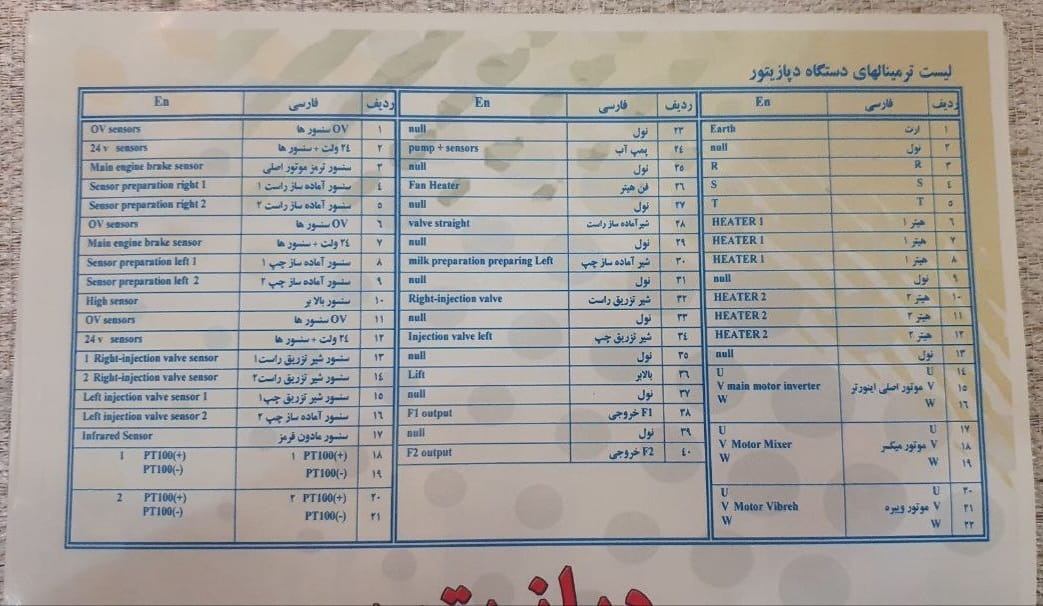 لیست ترمینالهای دستگاه دپازیتور
ردیف فارسی En
١ ارت Earth
٢ نول null
٣ R R
٤ S S
٥ T T
٦ هیتر ١ HEATER 1
٧ هیتر ١ HEATER 1
٨ هیتر ١ HEATER 1
٩ نول null
١٠ هیتر ٢ HEATER 2
١١ هیتر ٢ HEATER 2
١٢ هیتر ٢ HEATER 2
١٣ نول null
١٤ U U
١٥ V موتور اصلی اینورتر V main motor inverter
١٦ W W
١٧ U U
١٨ V موتور میکسر V Motor Mixer
١٩ W W
٢٠ U U
٢١ V موتور ویبره V Motor Vibreh
٢٢ W W
ردیف فارسی En
٢٣ نول null
٢٤ پمپ آب pump + sensors
٢٥ نول null
٢٦ فن هیتر Fan Heater
٢٧ نول null
٢٨ شیر آماده ساز راست valve straight
٢٩ نول null
٣٠ شیر آماده ساز چپ milk preparation preparing Left
٣١ نول null
٣٢ شیر تزریق راست Right-injection valve
٣٣ نول null
٣٤ شیر تزریق چپ Injection valve left
٣٥ نول null
٣٦ بالابر Lift
٣٧ نول null
٣٨ F1 خروجی F1 output
٣٩ نول null
٤٠ F2 خروجی F2 output
ردیف فارسی En
١ OV سنسور ها OV sensors
٢ ٢٤ ولت + سنسور ها 24 v sensors
٣ سنسور ترمز موتور اصلی Main engine brake sensor
٤ سنسور آماده ساز راست ١ Sensor preparation right 1
٥ سنسور آماده ساز راست ٢ Sensor preparation right 2
٦ OV سنسور ها OV sensors
٧ ٢٤ ولت + سنسور ها Main engine brake sensor
٨ سنسور آماده ساز چپ ١ Sensor preparation left 1
٩ سنسور آماده ساز چپ ٢ Sensor preparation left 2
١٠ سنسور بالا بر High sensor
١١ OV سنسور ها OV sensors
١٢ ٢٤ ولت + سنسور ها 24 v sensors
١٣ سنسور شیر تزریق راست ١ 1 Right-injection valve sensor
١٤ سنسور شیر تزریق راست ٢ 2 Right-injection valve sensor
١٥ سنسور شیر تزریق چپ ١ Left injection valve sensor 1
١٦ سنسور آماده ساز چپ ٢ Left injection valve sensor 2
١٧ سنسور مادون قرمز Infrared Sensor
١٨ ١ PT100(+) 1 PT100(+)
١٩ PT100(-) PT100(-)
٢٠ ٢ PT100(+) 2 PT100(+)
٢١ PT100(-) PT100(-)